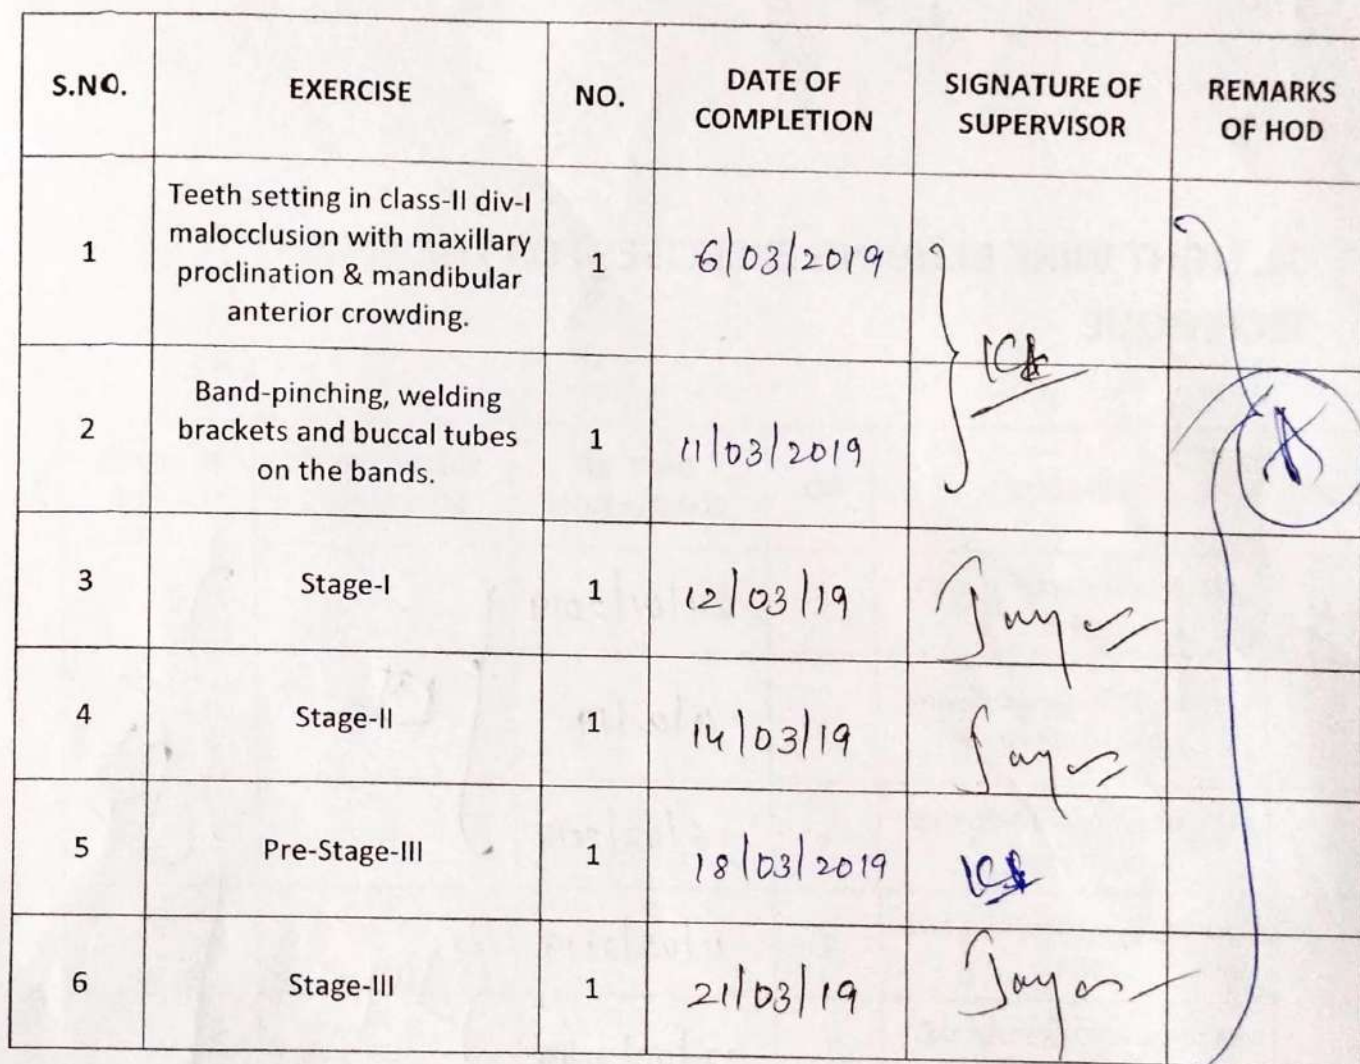 S.NO.
EXERCISE
NO.
DATE OF
COMPLETION
SIGNATURE OF
SUPERVISOR
REMARKS
OF HOD
1
Teeth setting in class-II div-I
malocclusion with maxillary
proclination & mandibular
anterior crowding.
1
6/03/2019
2
Band-pinching, welding
brackets and buccal tubes
on the bands.
1
11/03/2019
3
Stage-I
1
12/03/19
4
Stage-II
1
14/03/19
5
Pre-Stage-III
1
18/03/2019
6
Stage-III
1
21/03/19